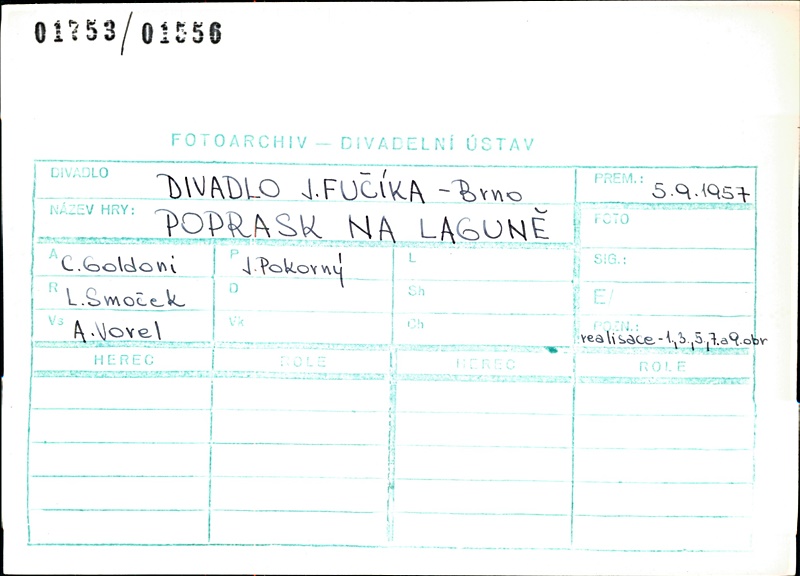 01753/01556
FOTOARCHIV – DIVADELNÍ ÚSTAV
DIVADLO DIVADLO J. FUČÍKA - Brno
PREM.: 5.9.1957
NÁZEV HRY: POPRASK NA LAGUNĚ
FOTO
A C. Goldoni P J. Pokorný L SIG.:
R L. Smoček D Sh E/
Vs A. Vorel Vk Ch POZN.: realisace - 1,3,5,7.a9.obr
HEREC ROLE HEREC ROLE